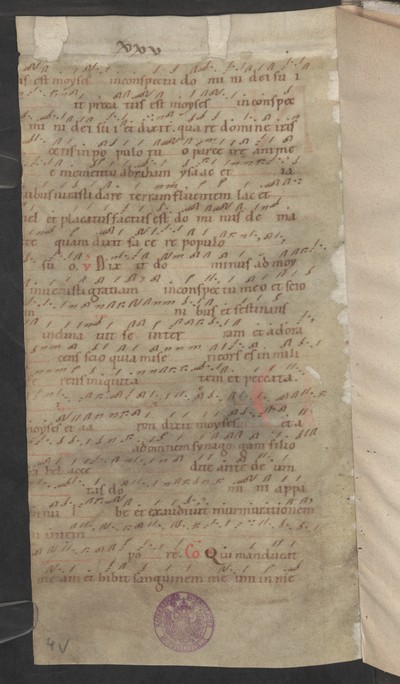 xxv
s est moyses in conspectu do mi ni dei su i
it preca tus est moyses in conspec
mi ni dei su i et dixit qua re domine iras
ceris in po pulo tu o parce ire anime
e memento abraham ysaac et ia
uibus iurasti dare terram fluentem lac et
el et placatus factus est do mi nus de ma
te quam dixit fa ce re populo
su o. V Dix it do minus ad moy
inuenisti gratiam in conspectu meo et scio
n ni bus et festinans
inclina uit se in ter ram et adora
cens scio quia mise ricors es in mili
fe rens iniquita tem et peccata.
moyses et aa ron dixit moyses et a
ad omnem synagogam filio
ra hel acce dite ante de um
tas do mi ni appa
in nu be et exaudiuit murmurationem
in uestram
po re. Co Qui manducat
me am et bibit sanguinem me um in me
4v